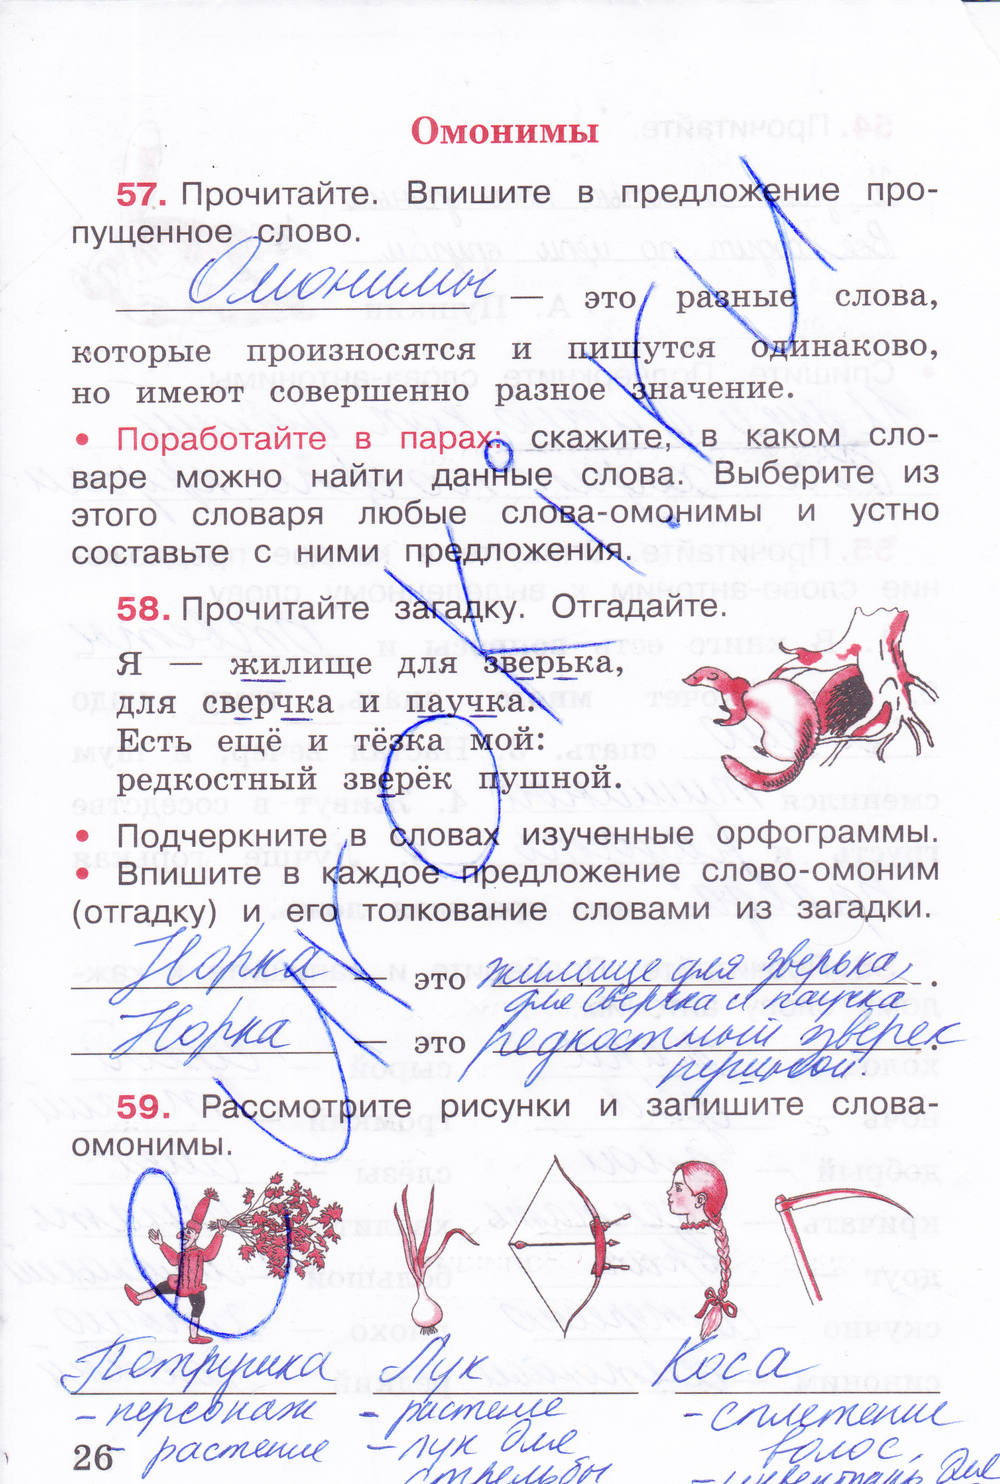 Омонимы
57. Прочитайте. Впишите в предложение про-
пущенное слово.
Омонимы — это разные слова,
которые произносятся и пишутся одинаково,
но имеют совершенно разное значение.
• Поработайте в парах: скажите, в каком сло-
варе можно найти данные слова. Выберите из
этого словаря любые слова-омонимы и устно
составьте с ними предложения.
58. Прочитайте загадку. Отгадайте.
Я — жилище для зверька,
для сверчка и паучка.
Есть ещё и тёзка мой:
редкостный зверёк пушной.
• Подчеркните в словах изученные орфограммы.
• Впишите в каждое предложение слово-омоним
(отгадку) и его толкование словами из загадки.
Норка — это жилище для зверька,
для сверчка и паучка.
Норка — это редкостный зверек
пушной.
59. Рассмотрите рисунки и запишите слова-
омонимы.
Петрушка Лук Коса
- персонаж - растение - сплетение
- растение - лук для волос,
26 стрельбы - инвентарь для